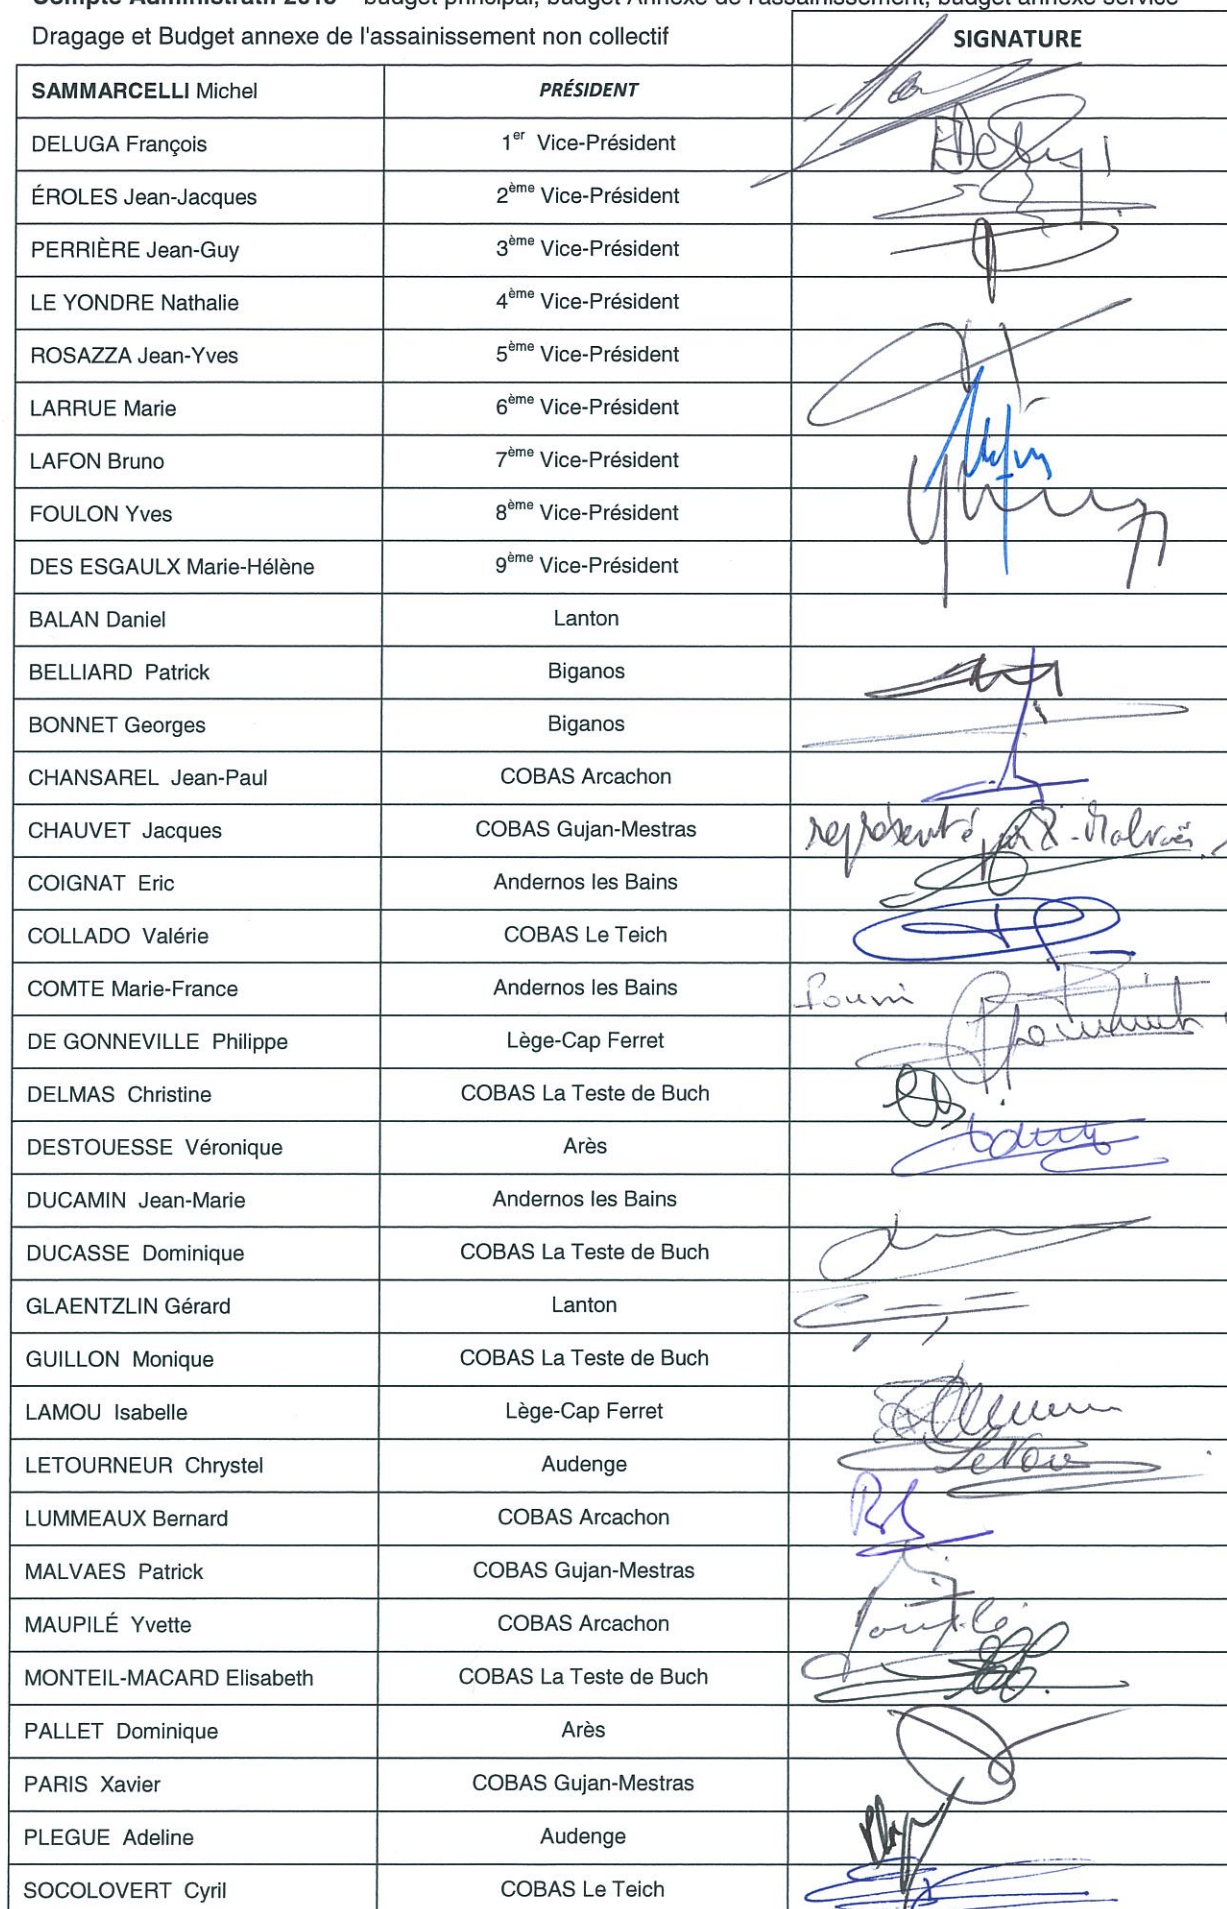 budget principal, budget Annexe de l'assainissement, budget annexe service
Dragage et Budget annexe de l'assainissement non collectif
SIGNATURE
SAMMARCELLI Michel PRÉSIDENT
DELUGA François 1er Vice-Président
ÉROLES Jean-Jacques 2ème Vice-Président
PERRIÈRE Jean-Guy 3ème Vice-Président
LE YONDRE Nathalie 4ème Vice-Président
ROSAZZA Jean-Yves 5ème Vice-Président
LARRUE Marie 6ème Vice-Président
LAFON Bruno 7ème Vice-Président
FOULON Yves 8ème Vice-Président
DES ESGAULX Marie-Hélène 9ème Vice-Président
BALAN Daniel Lanton
BELLIARD Patrick Biganos
BONNET Georges Biganos
CHANSAREL Jean-Paul COBAS Arcachon
CHAUVET Jacques COBAS Gujan-Mestras représenté
COIGNAT Eric Andernos les Bains
COLLADO Valérie COBAS Le Teich
COMTE Marie-France Andernos les Bains
DE GONNEVILLE Philippe Lège-Cap Ferret
DELMAS Christine COBAS La Teste de Buch
DESTOUESSE Véronique Arès
DUCAMIN Jean-Marie Andernos les Bains
DUCASSE Dominique COBAS La Teste de Buch
GLAENTZLIN Gérard Lanton
GUILLON Monique COBAS La Teste de Buch
LAMOU Isabelle Lège-Cap Ferret
LETOURNEUR Chrystel Audenge
LUMMEAUX Bernard COBAS Arcachon
MALVAES Patrick COBAS Gujan-Mestras
MAUPILÉ Yvette COBAS Arcachon
MONTEIL-MACARD Elisabeth COBAS La Teste de Buch
PALLET Dominique Arès
PARIS Xavier COBAS Gujan-Mestras
PLEGUE Adeline Audenge
SOCOLOVERT Cyril COBAS Le Teich